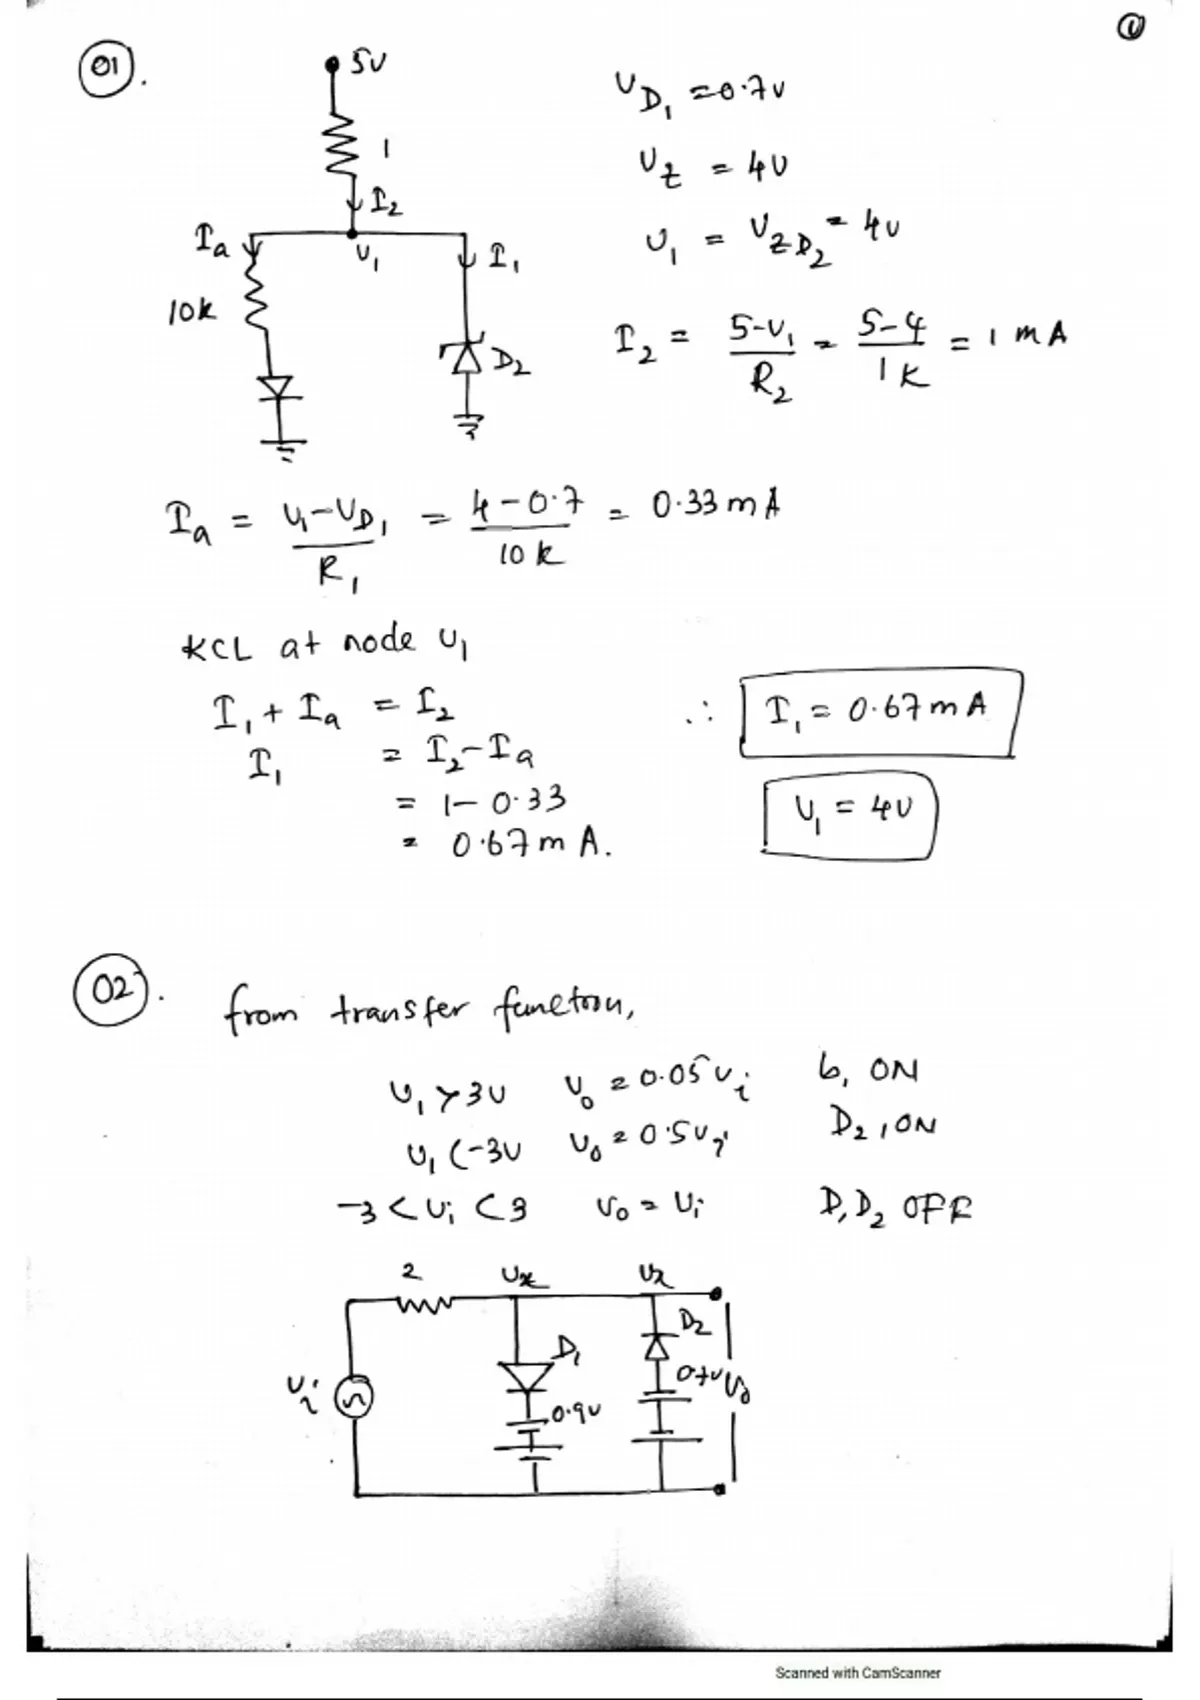 ①
01.
5V
1
I2
Ia
V1
I1
10k
D2
VD1 = 0.7v
VZ = 4V
V1 = VZD2 = 4v
I2 = 5-V1 / R2 = 5-4 / 1K = 1 mA
Ia = V1-VD1 / R1 = 4-0.7 / 10k = 0.33mA
KCL at node V1
I1 + Ia = I2
I1 = I2-Ia
= 1-0.33
= 0.67mA.
∴ I1 = 0.67mA
V1 = 4V
02.
from transfer function,
V1 > 3V V0 = 0.05Vi D1 ON
V1 < -3V V0 = 0.5Vi D2, ON
-3 < Vi < 3 V0 = Vi D1 D2 OFF
2
Vx
Vx
D2
D1
Vi
0.9V
V0
Scanned with CamScanner